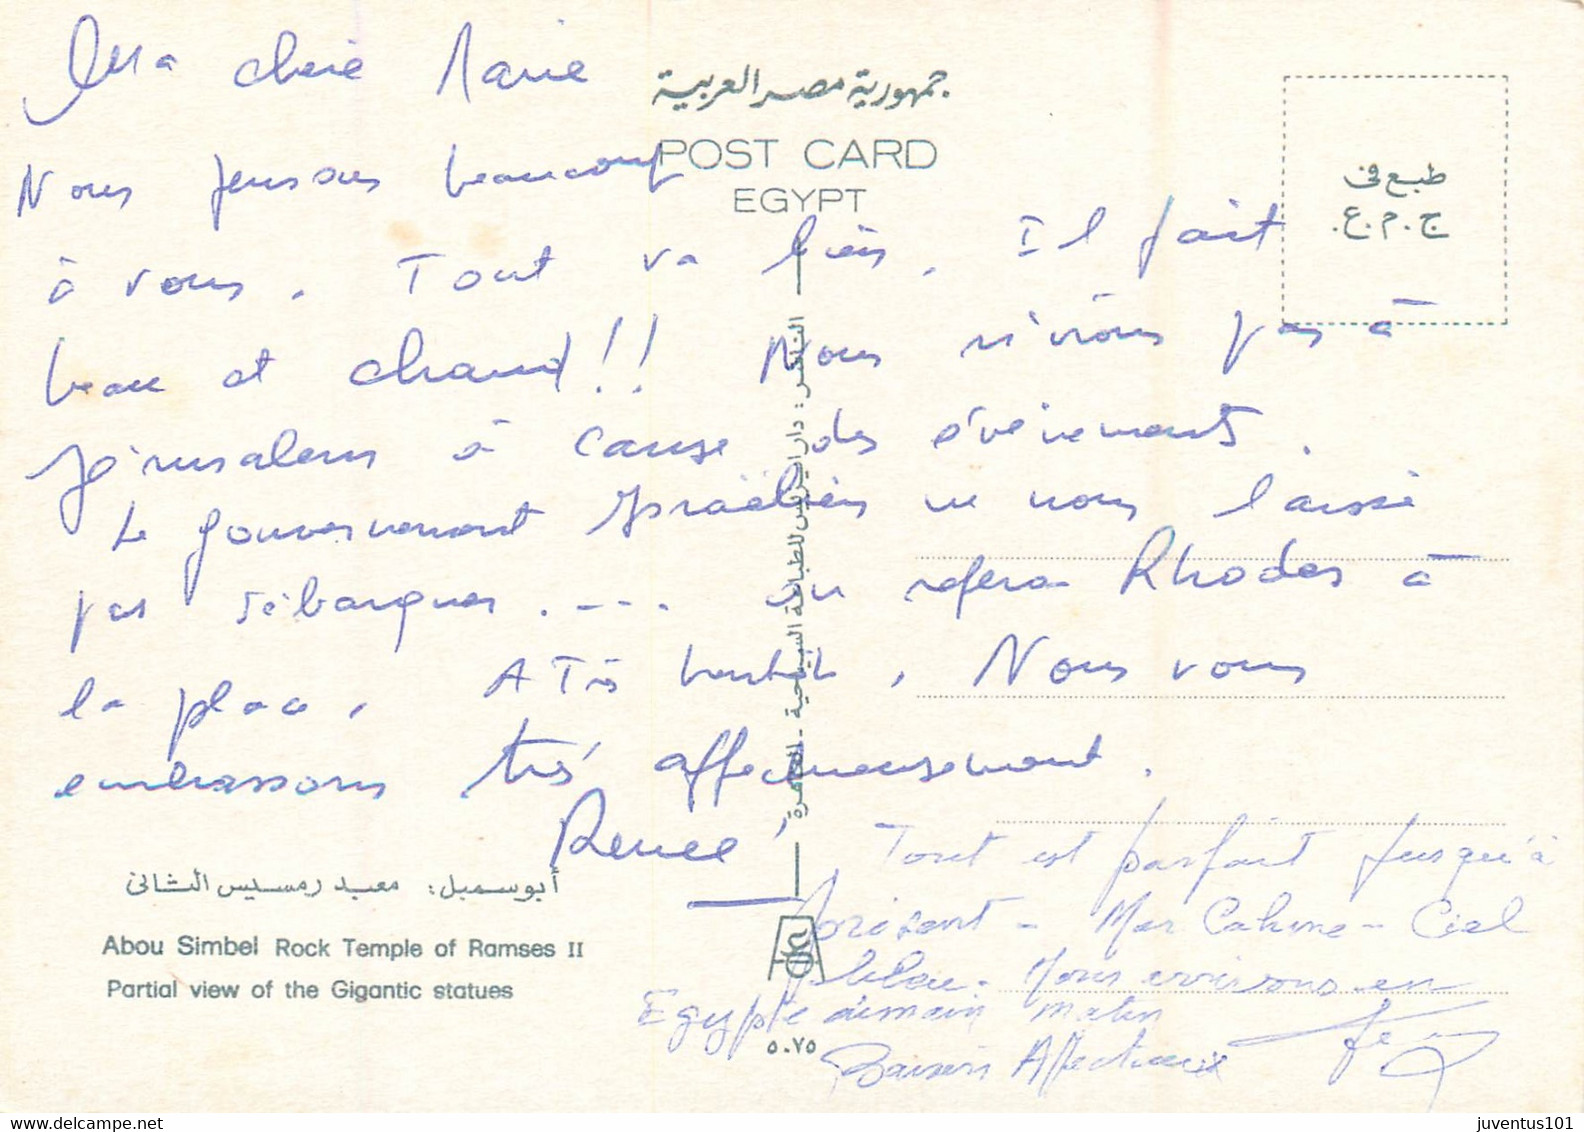 Ma chère Marie
Nous pensons beaucoup
à vous. Tout va bien. Il fait
beau et chaud!! Nous n'irons pas à
Jérusalem à cause des événements.
Le gouvernement Israëlien ne nous laisse
pas débarquer. --- on refera Rhodes à
la place. A Très bientôt. Nous vous
embrassons très affectueusement.
Renée
Tout est parfait jusqu'à
présent - Mer Calme - Ciel
bleu. Nous arrivons en
Egypte demain matin
Baisers Affectueux
جمهورية مصر العربية
POST CARD
EGYPT
طبع في
ج.م.ع.
الناشر: دار للطباعة السياحية - القاهرة
أبو سمبل: معبد رمسيس الثاني
Abou Simbel Rock Temple of Ramses II
Partial view of the Gigantic statues
٥٠٧٥
juventus101
delcampe.net